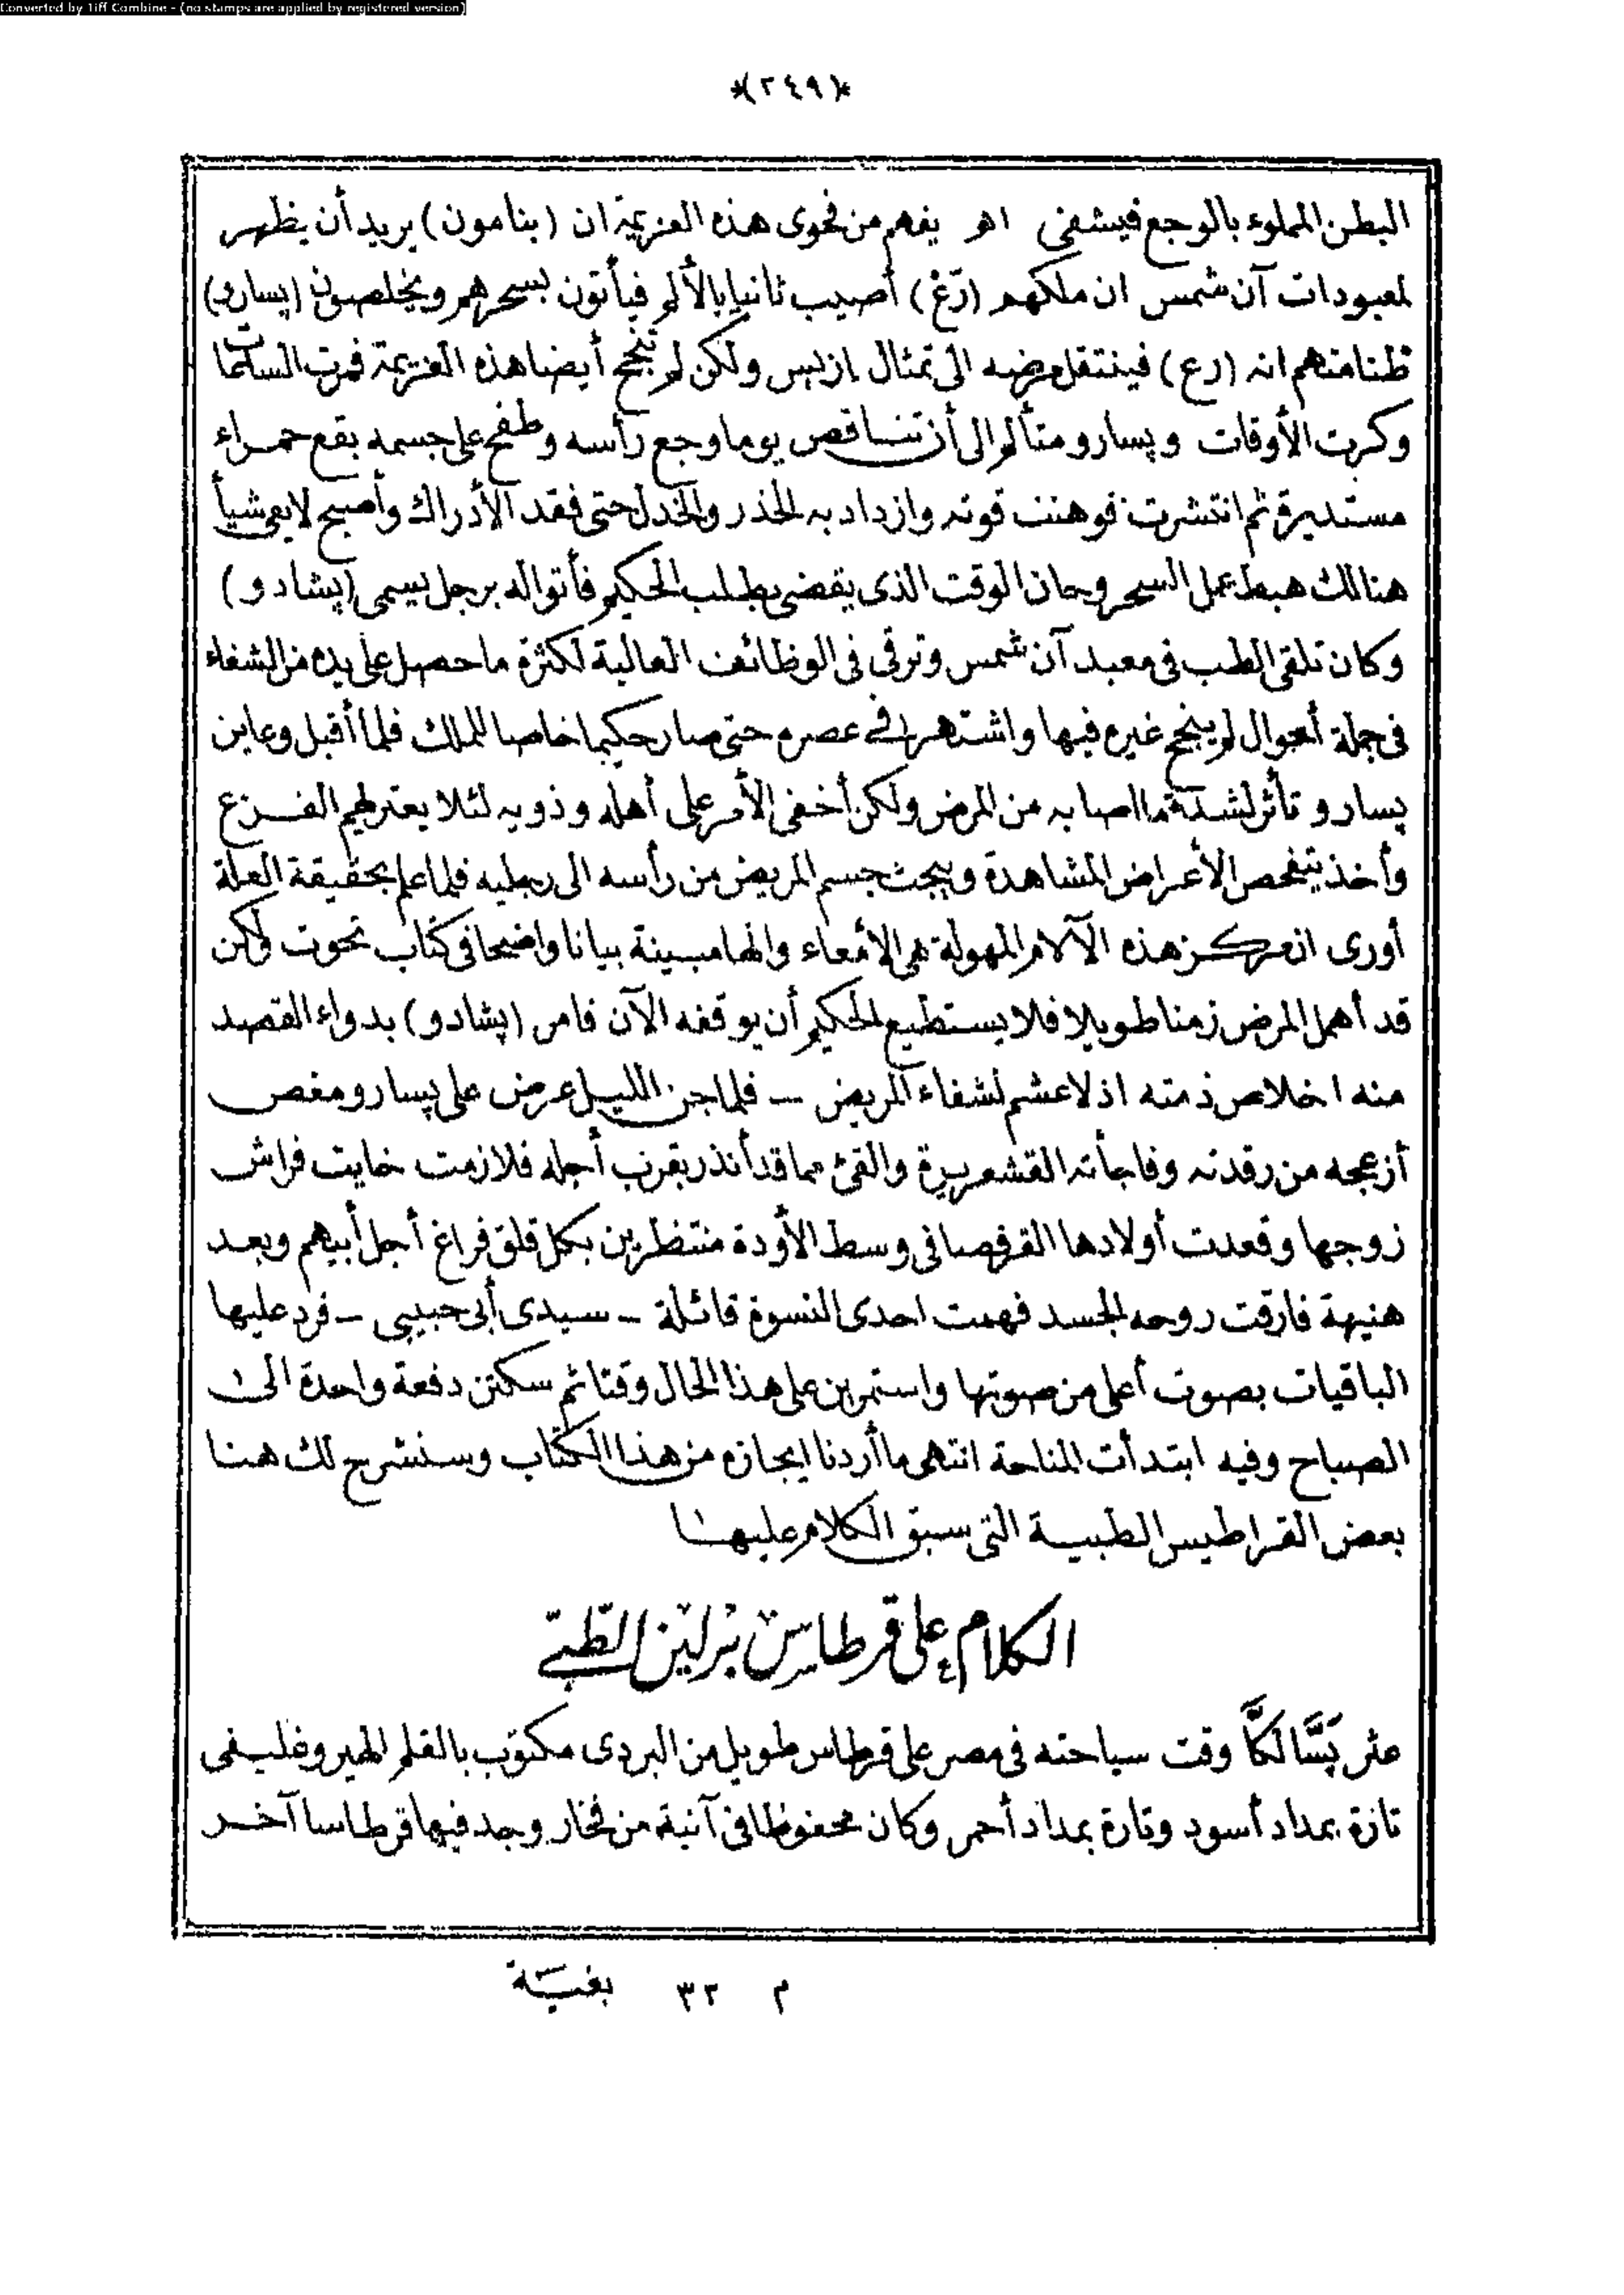 Converted by Tiff Combine - (no stamps are applied by registered version)
*(٢٤٩)*
البطن المملوء بالوجع فيشفى اهـ يفهم من فحوى هذه العزيمة ان (بنامون) يريد أن يظهر
لمعبودات آن شمس ان ملكهم (رَعْ) أصيب ثانيا بالألم فيأتون بسحرهم ويخلصون (پسارو)
ظنا منهم انه (رع) فينتقل مرضه الى تمثال ازيس ولكن لم تنجح أيضا هذه العزيمة فمرت الساعات
وكرت الأوقات وپسارو متألم الى أن تناقص يوما وجع رأسه وطفح على جسمه بقع حمراء
مستديرة ثم انتشرت فوهنت قوته وازداد به الخذر والخدل حتى فقد الأدراك وأصبح لا يعى شيأ
هنالك هبط عمل السحر وحان الوقت الذى يقضى بطلب الحكيم فأتوا له برجل يسمى (پشادو)
وكان تلقى الطب فى معبد آن شمس وترقى فى الوظائف العالية لكثرة ما حصل على يده من الشفاء
فى جملة أحوال لم ينجح غيره فيها واشتهر فى عصره حتى صار حكيما خاصا للملك فلما أقبل وعاين
پسارو تأثر لشدة ما اصابه من المرض ولكن أخفى الأمر على أهله وذويه لئلا يعتريهم الفزع
وأخذ يتفحص الأعراض المشاهدة ويبحث جسم المريض من رأسه الى رجليه فلما علم بحقيقة العلة
أورى ان مركز هذه الآلام المهولة هى الامعاء وانها مبينة بيانا واضحا فى كتاب تحوت ولكن
قد أهمل المرض زمنا طويلا فلا يستطيع الحكيم أن يوقفه الآن فامر (پشادو) بدواء القصد
منه اخلاص ذمته اذ لا عشم لشفاء المريض ـ فلما جن الليل عرض على پسارو مغص
أزعجه من رقدته وفاجأته القشعريرة والقئ مما قد أنذر بقرب أجله فلازمت خايت فراش
زوجها وقعدت أولادها القرفصا فى وسط الأودة منتظرين بكل قلق فراغ أجل أبيهم وبعد
هنيهة فارقت روحه الجسد فهمت احدى النسوة قائلة ـ سيدى أبى حبيبى ـ فرد عليها
الباقيات بصوت أعلى من صوتها واستمرين على هذا الحال وقتا ثم سكتن دفعة واحدة الى
الصباح وفيه ابتدأت المناحة انتهى ما أردنا ايجازه من هذا الكتاب وسنشرح لك هنا
بعض القراطيس الطبية التى سبق الكلام عليها
الكلام على قرطاس برلين الطبى
عثر پَسَّالَكَّا وقت سياحته فى مصر على قرطاس طويل من البردى مكتوب بالقلم الهيروغليفى
تارة بمداد أسود وتارة بمداد أحمر وكان محفوظا فى آنية من فخار وجد فيها قرطاسا آخر
م ٣٢ بغية